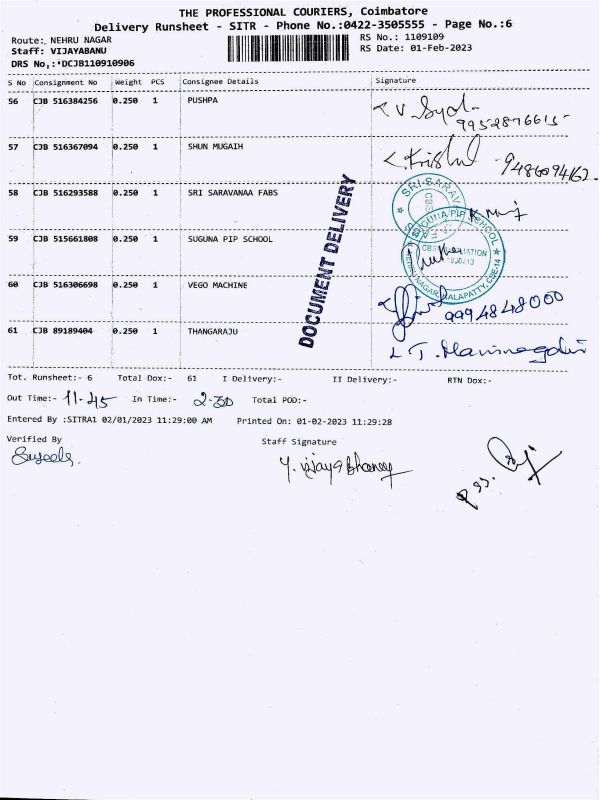 THE PROFESSIONAL COURIERS, Coimbatore
Delivery Runsheet - SITR - Phone No.:0422-3505555 - Page No.:6
Route: NEHRU NAGAR
RS No.: 1109109
Staff: VIJAYABANU
RS Date: 01-Feb-2023
DRS No,:*DCJB110910906
S No Consignment No Weight PCS Consignee Details Signature
56 CJB 516384256 0.250 1 PUSHPA
9952876615
57 CJB 516367094 0.250 1 SHUN MUGAIH
9486094162.
58 CJB 516293588 0.250 1 SRI SARAVANAA FABS
59 CJB 515661808 0.250 1 SUGUNA PIP SCHOOL
60 CJB 516306698 0.250 1 VEGO MACHINE
9994848000
61 CJB 89189404 0.250 1 THANGARAJU
DOCUMENT DELIVERY
SUGUNA PIP SCHOOL
NEHRU NAGAR, KALAPATTY, CBE-14
Tot. Runsheet:- 6 Total Dox:- 61 I Delivery:- II Delivery:- RTN Dox:-
Out Time:- 11-45 In Time:- 2-30 Total POD:-
Entered By :SITRA1 02/01/2023 11:29:00 AM Printed On: 01-02-2023 11:29:28
Verified By
Staff Signature